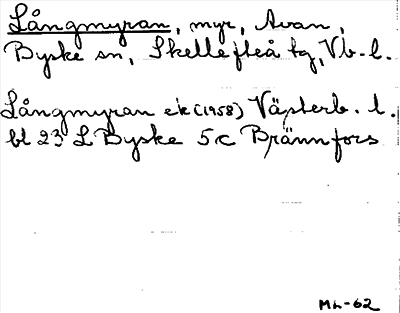 Långmyran, myr, Avan,
Byske sn, Skellefteå tg, Vb. l.
Långmyran ek (1958) Västerb. l.
bl 23 L Byske 5c Brännfors
ML-62